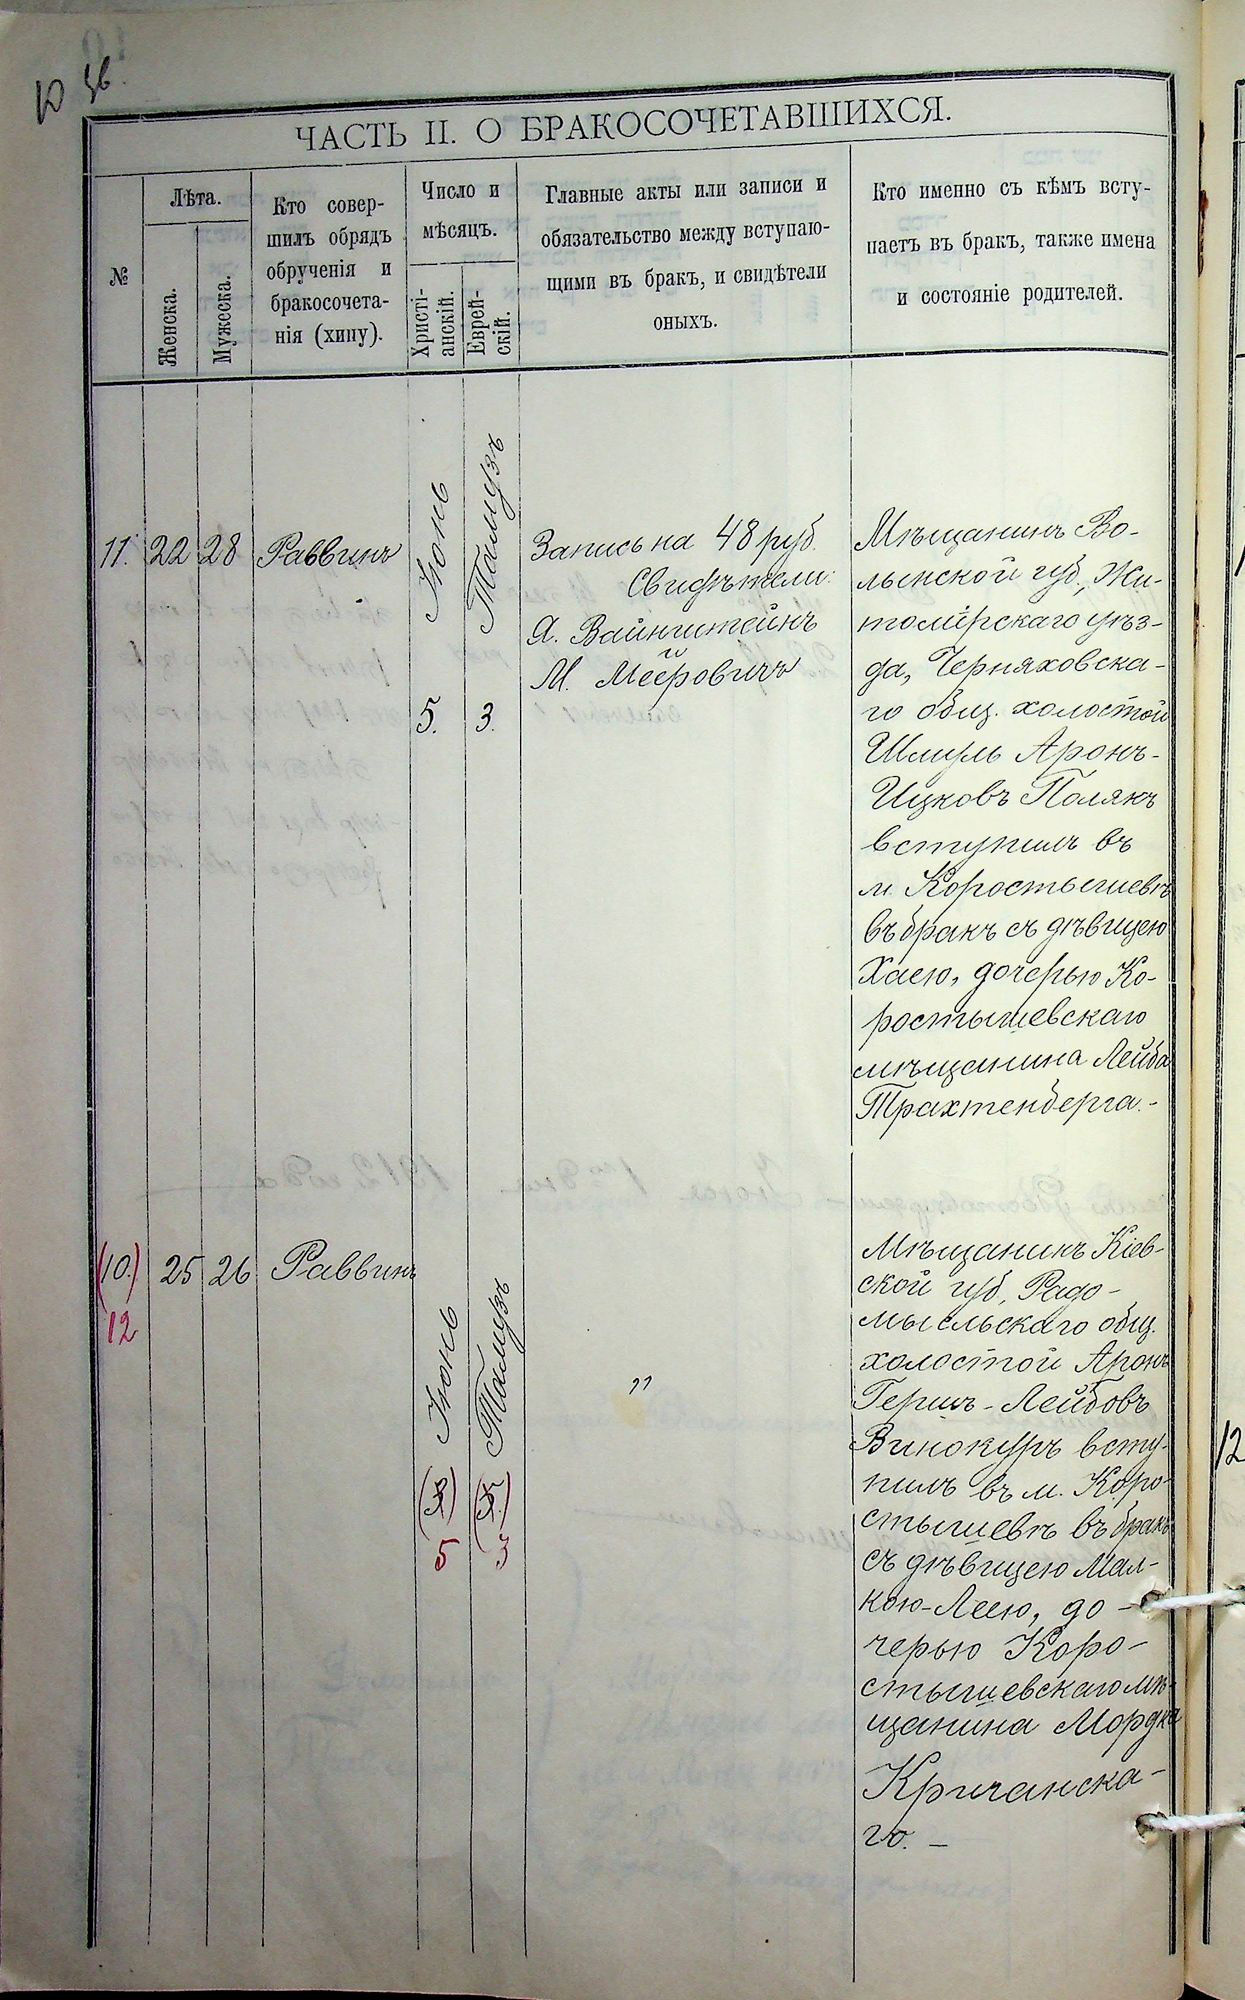 Ю 56.
ЧАСТЬ II. О БРАКОСОЧЕТАВШИХСЯ.
№
Лѣта.
Женска.
Мужеска.
Кто совер-
шилъ обрядъ
обрученія и
бракосочета-
нія (хипу).
Число и
мѣсяцъ.
Христі-
анскій.
Еврей-
скій.
Главные акты или записи и
обязательство между вступаю-
щими въ бракъ, и свидѣтели
оныхъ.
Кто именно съ кѣмъ всту-
паетъ въ бракъ, также имена
и состояніе родителей.
11. 22 28 Раввинъ
Іюнь
5.
Тамузъ
3.
Запись на 48 руб.
Свидѣтели:
Я. Вайнштейнъ
и
М. Мееровичъ
Мѣщанинъ Во-
лынской губ., Жи-
томірскаго уѣз-
да, Черняховска-
го общ. холостой
Шмуль Аронъ-
Ицковъ Полякъ
вступилъ въ
м. Коростышевѣ
въ бракъ съ дѣвицею
Хаею, дочерью Ко-
ростышевскаго
мѣщанина Лейба
Трахтенберга.-
(10.) 25 26 Раввинъ
12
Іюнь
5
Тамузъ
3
"
Мѣщанинъ Кіев-
ской губ, Радо-
мысльскаго общ.
холостой Аронъ
Гершъ-Лейбовъ
Винокуръ всту-
пилъ въ м. Коро-
стышевѣ въ бракъ
съ дѣвицею Мал-
кою-Леею, до-
черью Коро-
стышевскаго мѣ-
щанина Мордка
Кричанска-
го. -
12